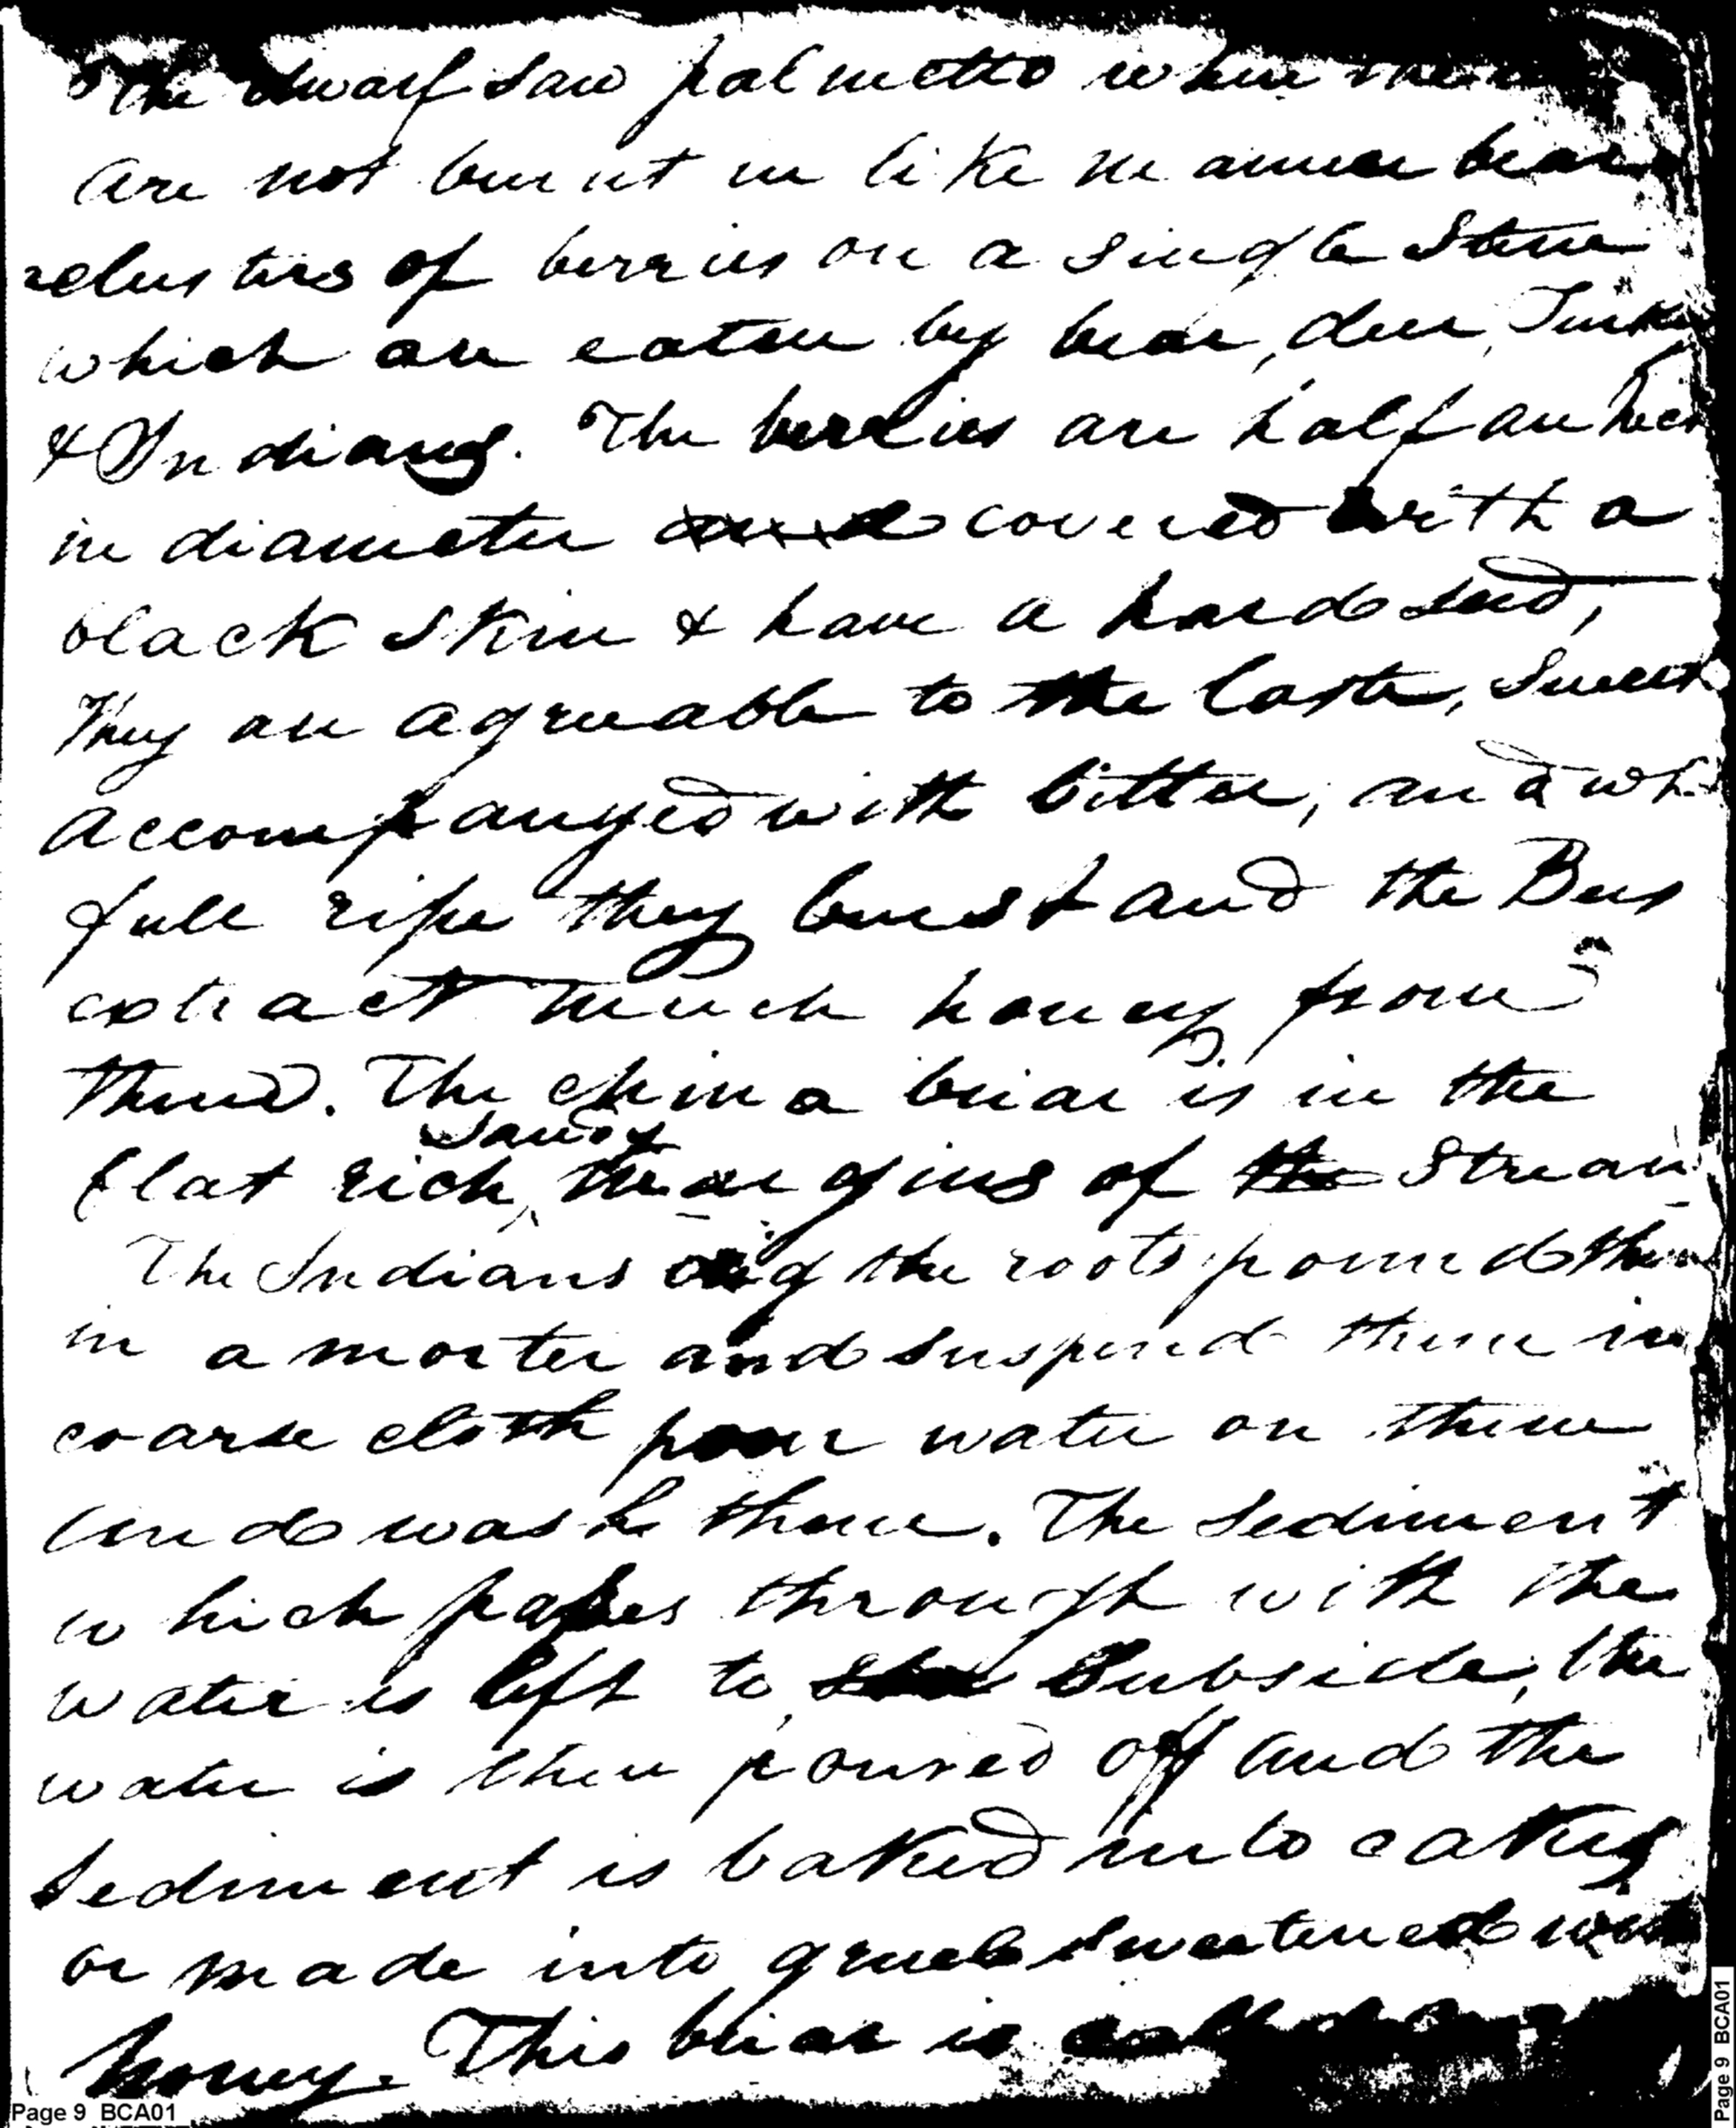 The dwarf saw palmetto when the
are not burnt in like manner bear
clusters of berries on a single Stem
which are eaten by bear, deer, Turkey
& Indians. The berries are half an inch
in diameter and covered with a
black skin & have a hard seed,
They are agreeable to the taste, Sweet
accompanyed with bitter, and wh
full ripe they burst and the Bees
extract much honey from
them. The china briar is in the
Sandy
flat rich, margins of the Stream
The Indians dig the roots pound them
in a morter and suspend them in
coarse cloth pour water on them
and wash them. The sediment
which passes through with the
water is left to Subside, the
water is then poured off and the
sediment is baked into cakes
or made into gruel sweetened with
honey. This briar is called
Page 9 BCA01
Page 9 BCA01